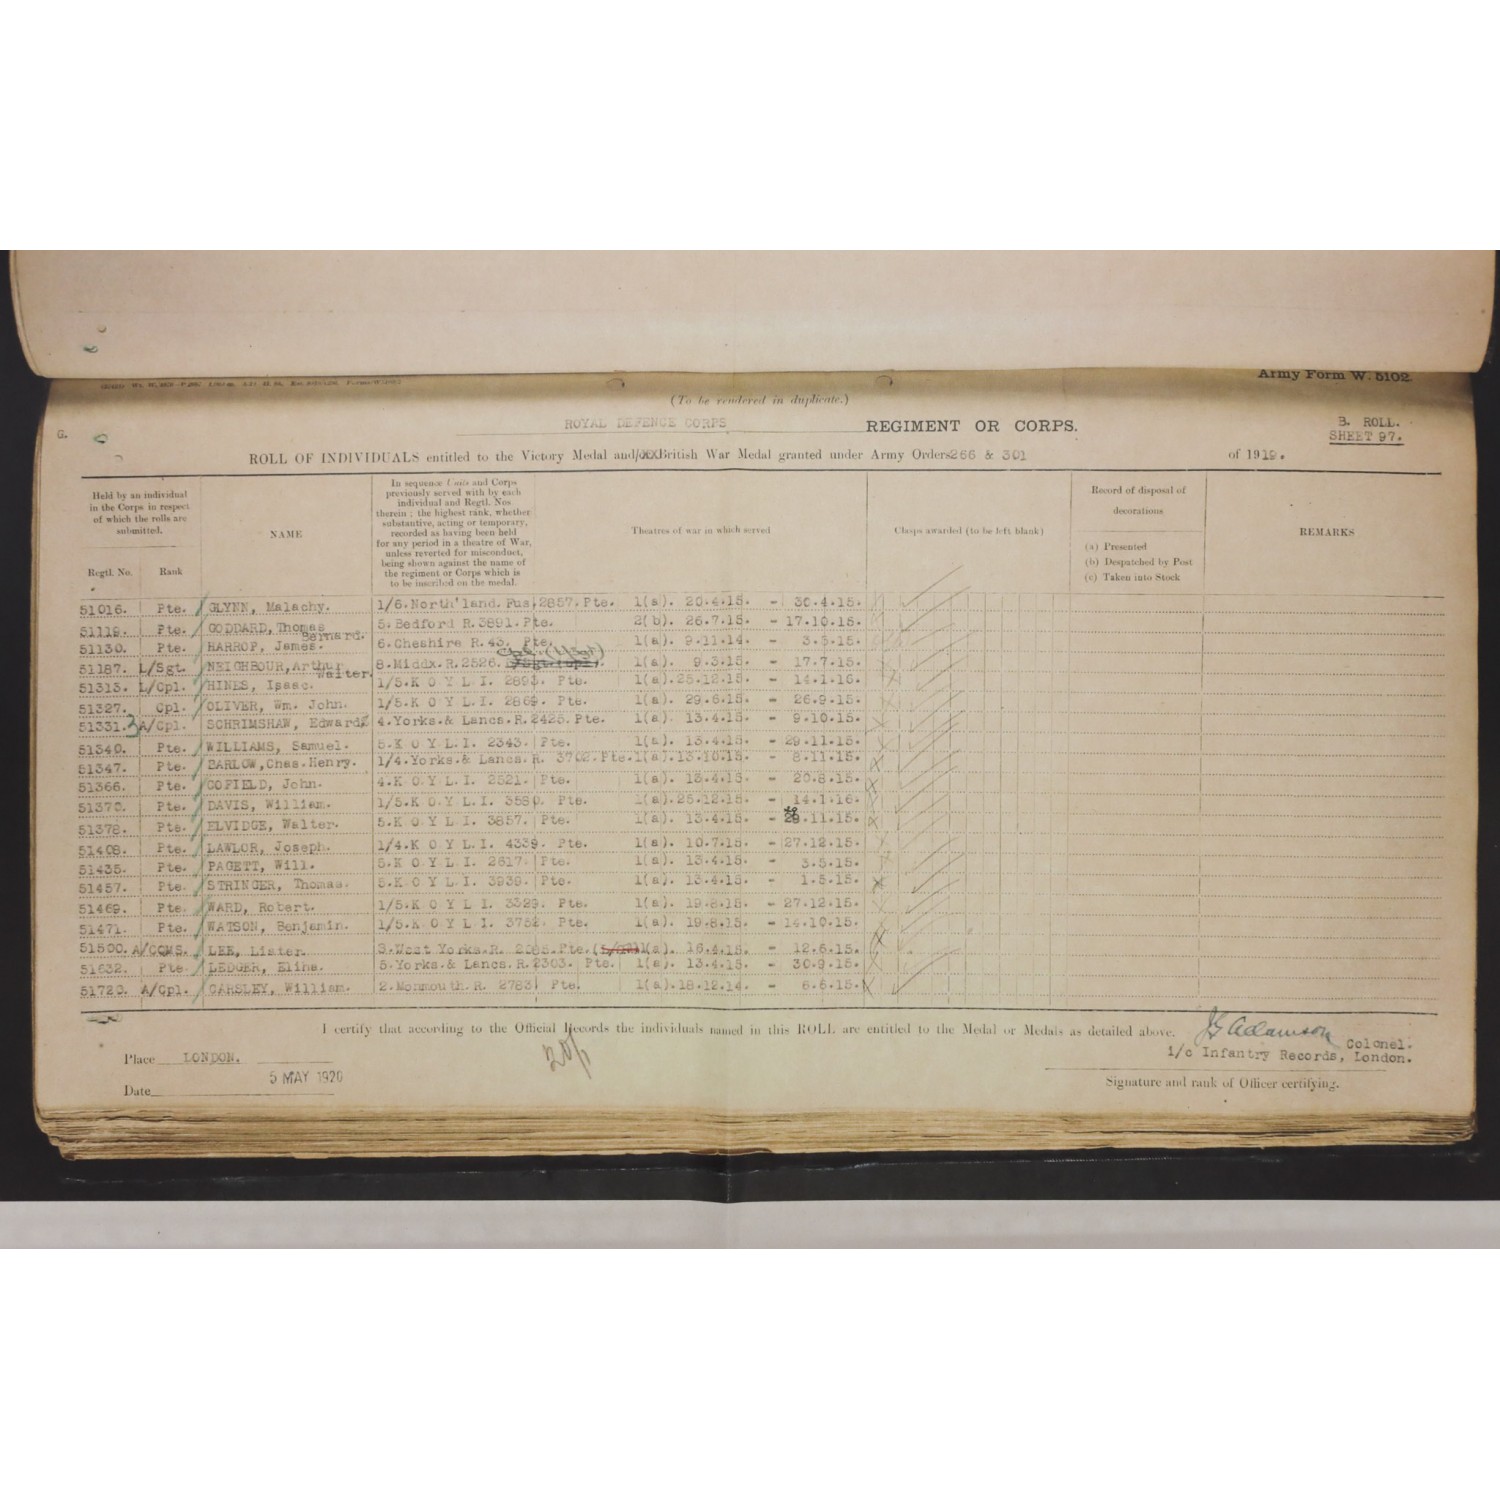 Army Form W. 5102.
(To be rendered in duplicate.)
G.
ROYAL DEFENCE CORPS REGIMENT OR CORPS.
B. ROLL.
SHEET 97.
ROLL OF INDIVIDUALS entitled to the Victory Medal and/or British War Medal granted under Army Orders 266 & 301 of 1919.
Held by an individual in the Corps in respect of which the rolls are submitted.
Regtl. No. Rank
NAME
In sequence Units and Corps
previously served with by each
individual and Regtl. Nos.
therein ; the highest rank, whether
substantive, acting or temporary,
recorded as having been held
for any period in a theatre of War,
unless reverted for misconduct,
being shown against the name of
the regiment or Corps which is
to be inscribed on the medal.
Theatres of war in which served
Clasps awarded (to be left blank)
Record of disposal of
decorations
(a) Presented
(b) Despatched by Post
(c) Taken into Stock
REMARKS
51016. Pte. GLYNN, Malachy. 1/6.North'land. Fus, 2857. Pte. 1(a). 20.4.15. - 30.4.15.
51119. Pte. GODDARD, Thomas Bernard. 5. Bedford R.3891. Pte. 2(b). 26.7.15. - 17.10.15.
51130. Pte. HARROP, James. 6.Cheshire R.43. Pte. 1(a). 9.11.14. - 3.3.15.
51187. L/Sgt. NEIGHBOUR, Arthur Walter. 8.Middx.R.2526. Cpl. (L/Sgt) 1(a). 9.3.15. - 17.7.15.
51313. L/Cpl. HINES, Isaac. 1/5.K O Y L I. 2893. Pte. 1(a). 25.12.15. - 14.1.16.
51327. Cpl. OLIVER, Wm. John. 1/5.K O Y L I. 2869. Pte. 1(a). 29.6.15. - 26.9.15.
51331. A/Cpl. SCHRIMSHAW, Edward 4.Yorks.& Lancs.R.2425. Pte. 1(a). 13.4.15. - 9.10.15.
51340. Pte. WILLIAMS, Samuel. 5.K O Y L I. 2343. Pte. 1(a). 13.4.15. - 29.11.15.
51347. Pte. BARLOW, Chas. Henry. 1/4.Yorks.& Lancs.R. 3702. Pte. 1(a). 13.10.15. - 8.11.15.
51366. Pte. COFIELD, John. 4.K O Y L I. 2521. Pte. 1(a). 13.4.15. - 20.8.15.
51370. Pte. DAVIS, William. 1/5.K O Y L I. 3580. Pte. 1(a). 25.12.15. - 14.1.16.
51378. Pte. ELVIDGE, Walter. 5.K O Y L I. 3857. Pte. 1(a). 13.4.15. - 28.11.15.
51408. Pte. LAWLOR, Joseph. 1/4.K O Y L I. 4339. Pte. 1(a). 10.7.15. - 27.12.15.
51435. Pte. PAGETT, Will. 5.K O Y L I. 2617. Pte. 1(a). 13.4.15. - 3.5.15.
51457. Pte. STRINGER, Thomas. 5.K O Y L I. 3939. Pte. 1(a). 13.4.15. - 1.5.15.
51469. Pte. WARD, Robert. 1/5.K O Y L I 3329. Pte. 1(a). 19.8.15. - 27.12.15.
51471. Pte. WATSON, Benjamin. 1/5.K O Y L I 3752. Pte. 1(a). 19.8.15. - 14.10.15.
51500. A/CQMS. LEE, Lister. 3.West Yorks.R. Pte. 1(a). 16.4.15. - 12.6.15.
51632. Pte. LEDGER, Eliha. 5.Yorks.& Lancs.R.2303. Pte. 1(a). 13.4.15. - 30.9.15.
51720. A/Cpl. CARSLEY, William. 2.Monmouth.R. 2783 Pte. 1(a). 18.12.14. - 6.6.15.
I certify that according to the Official Records the individuals named in this ROLL are entitled to the Medal or Medals as detailed above.
JG Adamson Colonel.
i/c Infantry Records, London.
Signature and rank of Officer certifying.
Place LONDON.
Date 5 MAY 1920
20/1